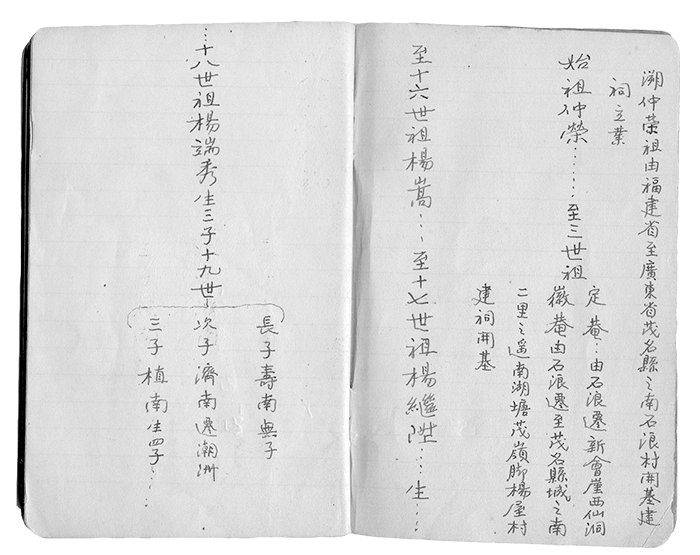 溯仲榮祖由福建省至廣東省茂名縣之南石浪村開基建
祠立業
始祖仲榮……至三世祖
定菴…由石浪遷新會崖西仙洞
徽菴由石浪遷至茂名縣城之南
二里之遥南湖塘茂嶺脚楊屋村
建祠開基
至十六世祖楊嵩…至十七世祖楊繼陞…生…
…十八世祖楊端秀生三子十九世
長子壽南無子
次子濟南遷潮洲
三子植南生四子……